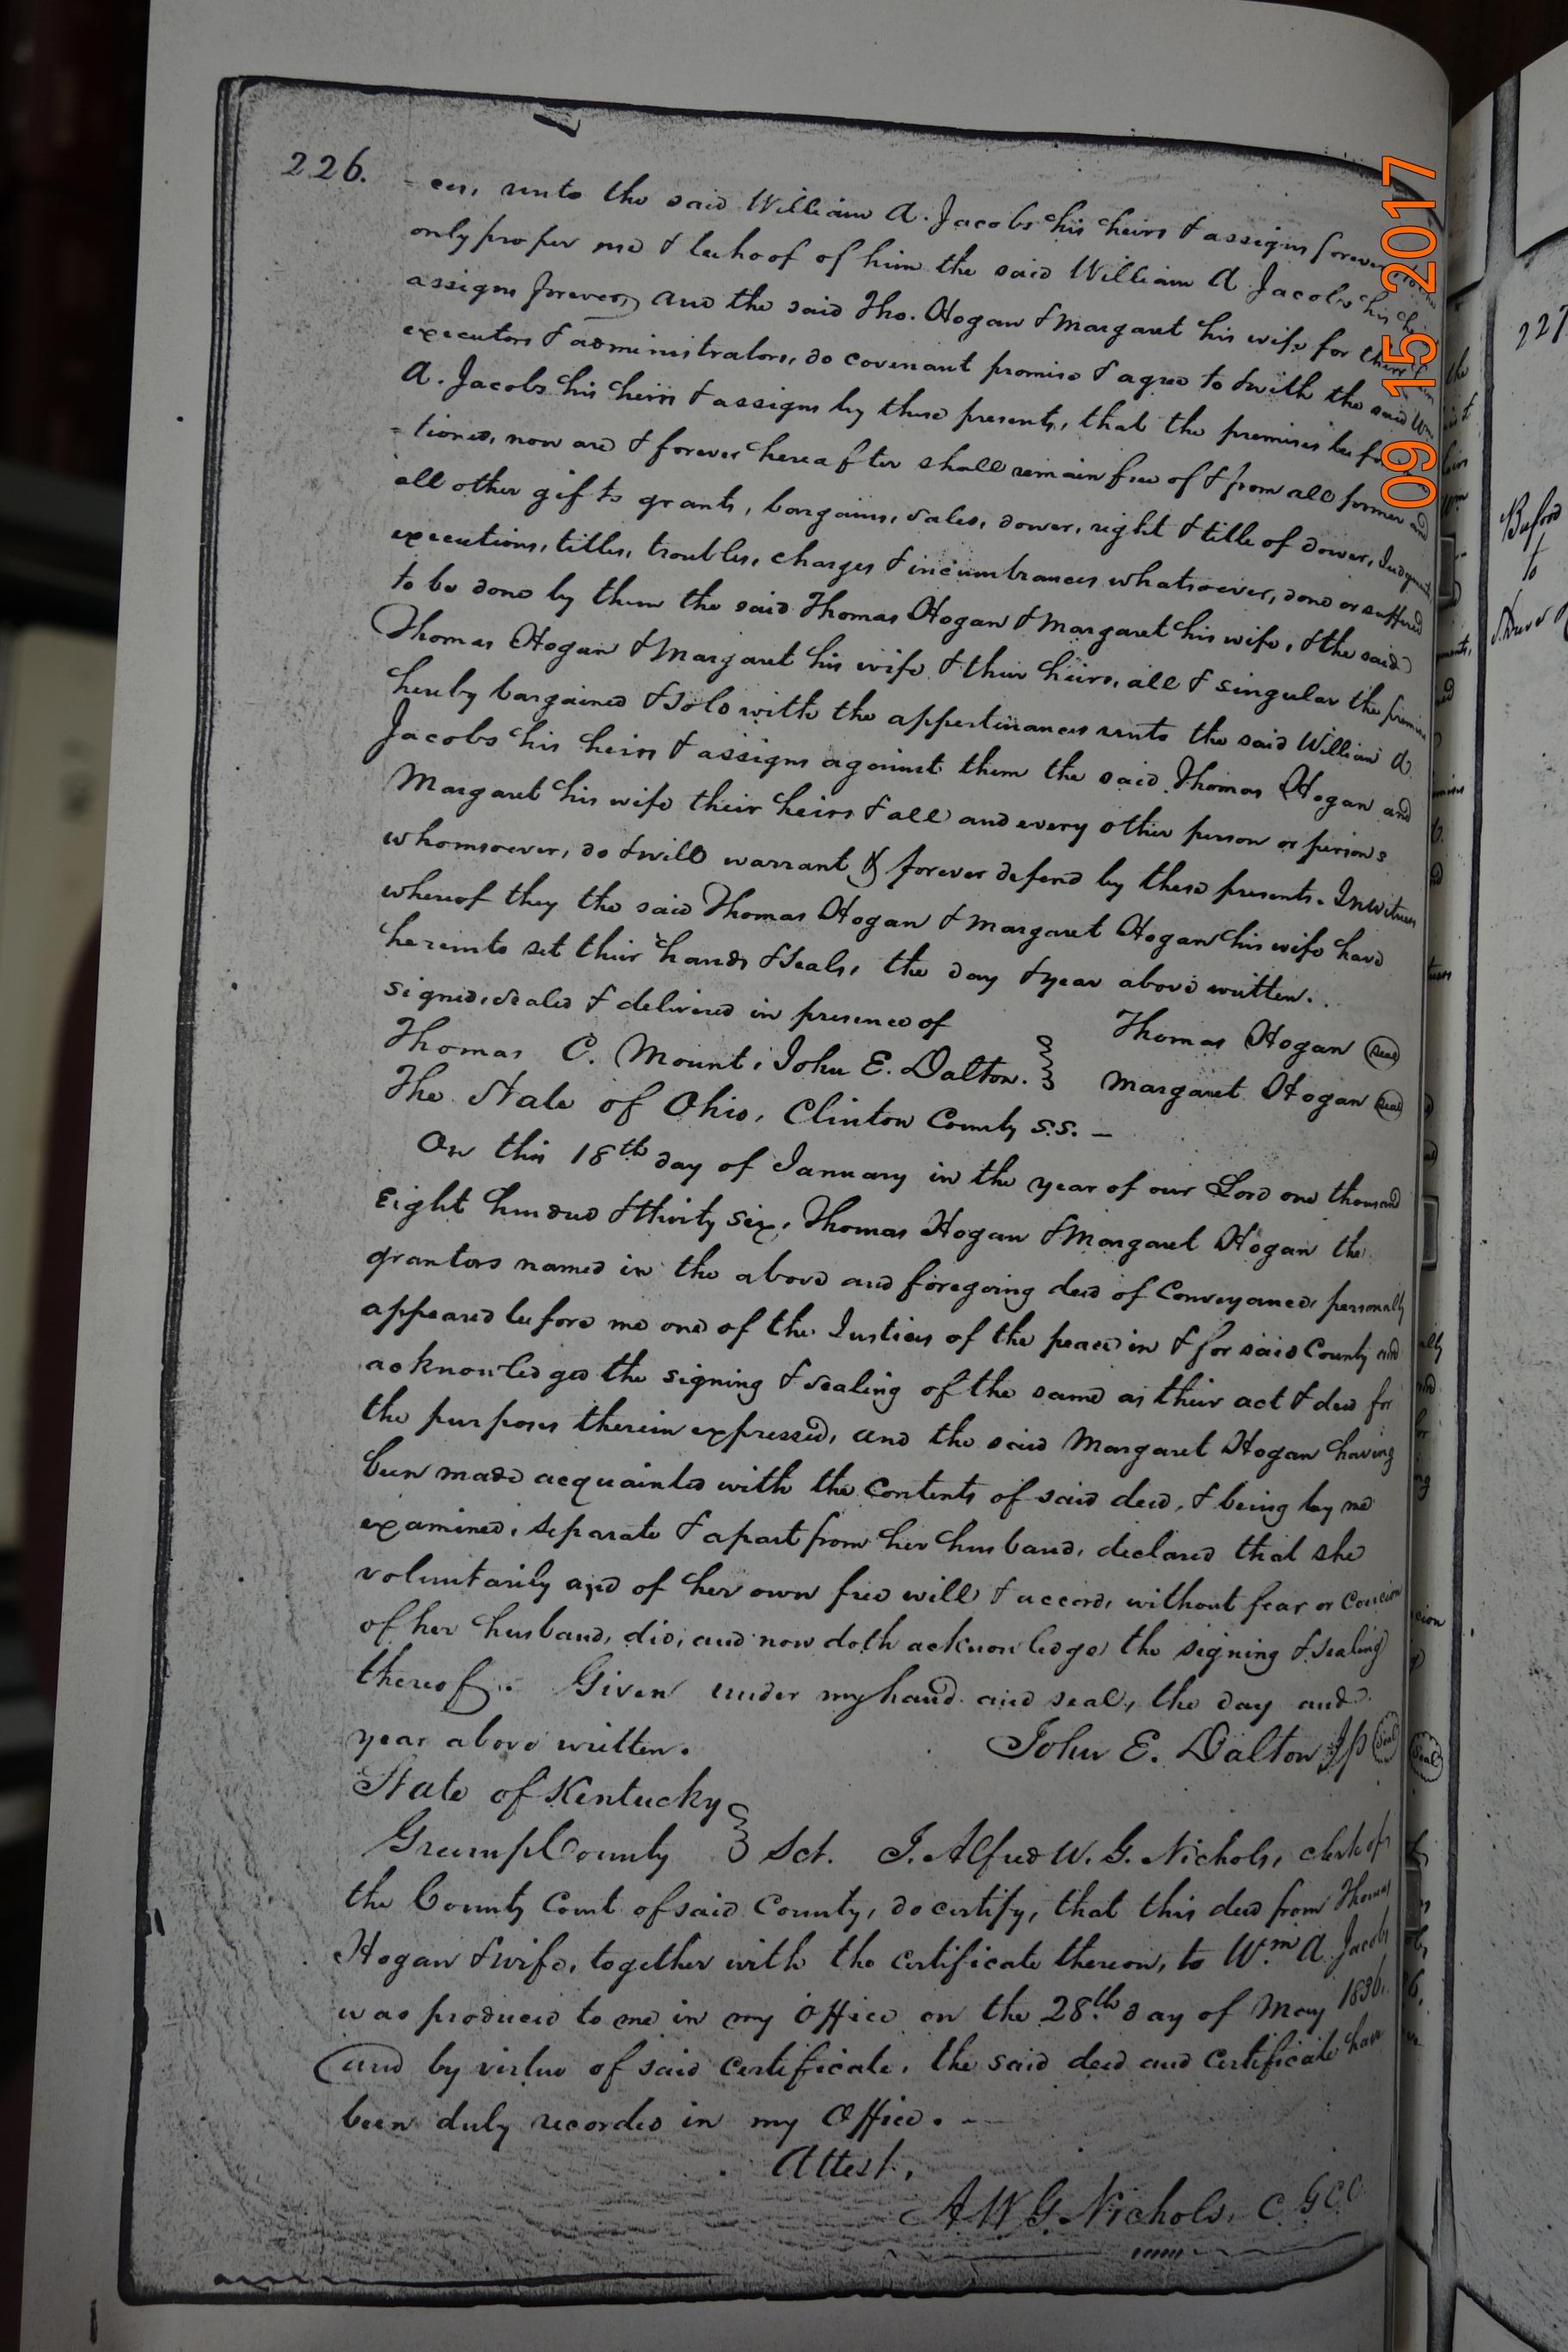 226.
- ces, unto the said William A. Jacobs his heirs & assigns forever
only proper use & behoof of him the said William A. Jacobs his
assigns forever, and the said Tho. Hogan & Margaret his wife for their
executors & administrators, do covenant promise & agree to & with the said Wm
A. Jacobs his heirs & assigns by these presents, that the premises before
- tioned, now are & forever hereafter shall remain free of & from all former and
all other gifts grants, bargains, sales, dower, right & title of dower, Judgments,
executions, titles, troubles, charges & incumbrances whatsoever, done or suffered
to be done by them the said Thomas Hogan & Margaret his wife, & the said
Thomas Hogan & Margaret his wife & their heirs, all & singular the premises
hereby bargained & sold with the appertinances unto the said William A.
Jacobs his heirs & assigns against them the said Thomas Hogan and
Margaret his wife their heirs & all and every other person or persons
whomsoever, do & will warrant & forever defend by these presents. In witness
whereof they the said Thomas Hogan & Margaret Hogan his wife have
hereunto set their hands & seals, the day & year above written.
signed, sealed & delivered in presence of
Thomas Hogan (seal)
Thomas C. Mount, John E. Dalton.
Margaret Hogan (seal)
The State of Ohio, Clinton County s.s. -
On this 18th day of January in the year of our Lord one thousand
Eight hundred & thirty six, Thomas Hogan & Margaret Hogan the
grantors named in the above and foregoing deed of Conveyance, personally
appeared before me one of the Justices of the peace in & for said County and
acknowledged the signing & sealing of the same as their act & deed for
the purposes therein expressed, and the said Margaret Hogan having
been made acquainted with the Contents of said deed, & being by me
examined, separate & apart from her husband, declared that she
voluntarily and of her own free will & accord, without fear or Coercion
of her husband, did, and now doth acknowledge, the signing & sealing
thereof. Given under my hand and seal, the day and
year above written.
John E. Dalton JP (Seal)
State of Kentucky
Greenup County } Sct. I. Alfred W. G. Nichols, clerk of
the County Court of said County, do certify, that this deed from Thomas
Hogan & wife, together with the certificate thereon, to Wm A. Jacobs
was produced to me in my Office on the 28th day of May 1836.
and by virtue of said certificate, the said deed and certificate have
been duly recorded in my Office. -
Attest,
A W G. Nichols, C. G C C
09 15 2017
227
Buford
to